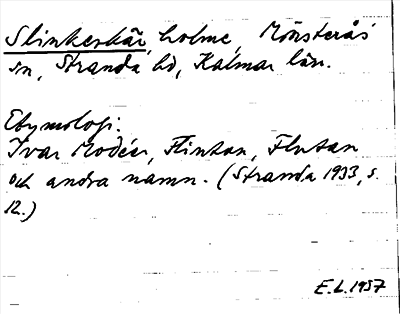 Slinkeskär, holme, Mönsterås
sn, Stranda hd, Kalmar län.
Etymologi:
Ivar Modéer, Flintan, Flutan
och andra namn. (Stranda 1933, s.
12.)
E.L. 1957